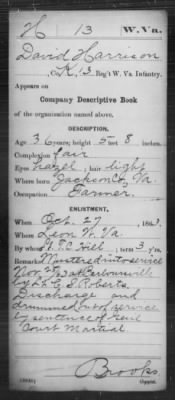 H 13 W.Va.
David Harrison
, Co. K, 13 Reg't W. Va. Infantry.
Appears on
Company Descriptive Book
of the organization named above.
DESCRIPTION.
Age 36 years; height 5 feet 8 inches.
Complexion fair
Eyes hazel; hair light
Where born Jackson Co, Va.
Occupation Farmer
ENLISTMENT.
When Oct. 27, 1863.
Where Leon W. Va.
By whom Hill; term 3 y'rs.
Remarks Mustered into service
Nov. 25, 63 at
by Lt. C. S. Roberts.
Discharge and
drummed out of service
by sentence of Genl
Court Martial
Brooks
Copyist.